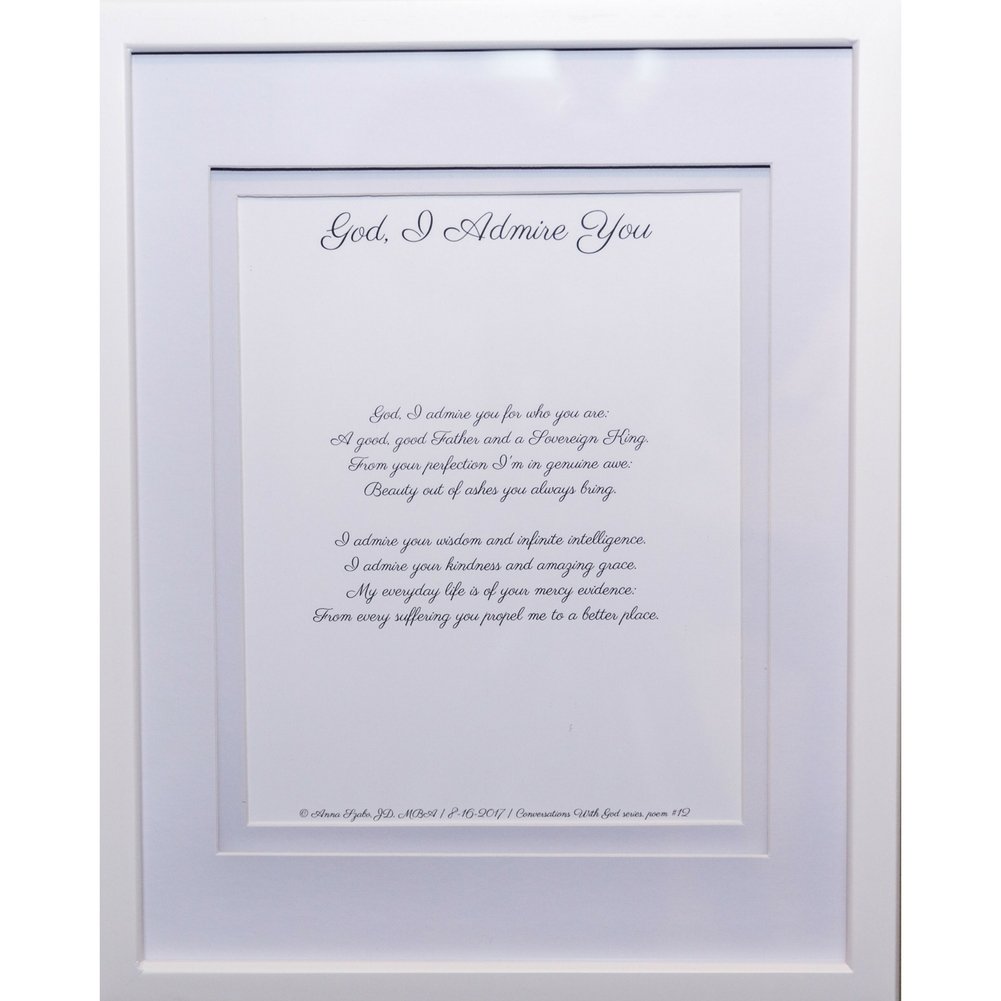 God, I Admire You
God, I admire you for who you are:
A good, good Father and a Sovereign King.
From your perfection I'm in genuine awe:
Beauty out of ashes you always bring.
I admire your wisdom and infinite intelligence.
I admire your kindness and amazing grace.
My everyday life is of your mercy evidence:
From every suffering you propel me to a better place.
© Anna Szabo, JD, MBA | 8-16-2017 | Conversations With God series, poem #12